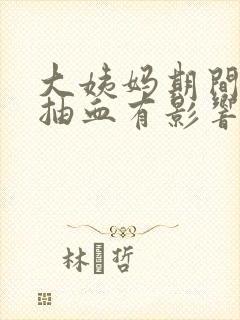 大姨妈期間
抽血有影響
林 哲